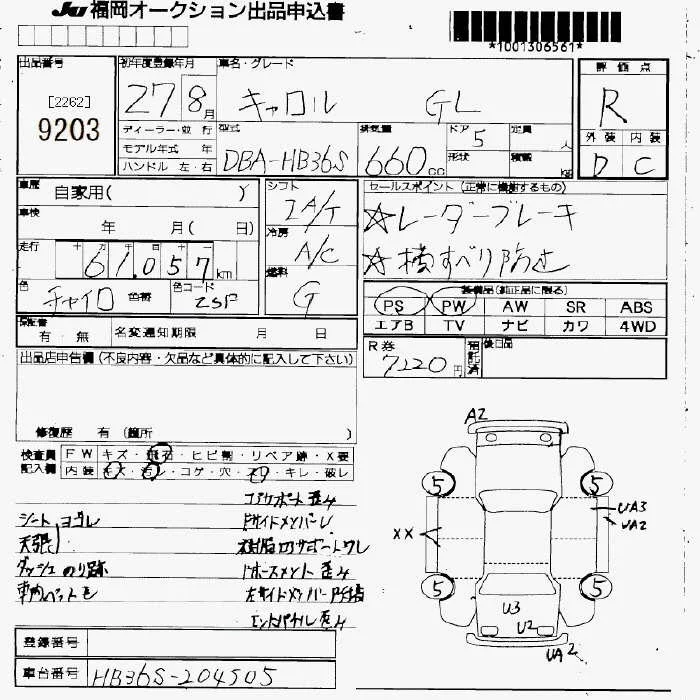 JU 福岡オークション出品申込書
*1001306561*
出品番号
[2262]
9203
初年度登録年月
27 8月
車名・グレード
キャロル GL
評価点
R
外装 内装
D C
ディーラー・並行
モデル年式 年
ハンドル 左・右
型式
DBA-HB36S
排気量
660cc
ドア
5
形状
定員
人
積載
kg
車歴
自家用( )
車検
年 月( 日)
走行
十 万 千 百 十 一
61,057km
色
チャイロ 色替
色コード
ZSF
シフト
IA/T
冷房
A/C
燃料
G
セールスポイント(正常に機能するもの)
☆レーダーブレーキ
☆横すべり防止
装備品(純正品に限る)
PS PW AW SR ABS
エアB TV ナビ カワ 4WD
保証書
有・無
名変通知期限 月 日
R券
7220円
預託済
後日品
出品店申告欄(不良内容・欠品など具体的に記入して下さい)
修復歴 有(箇所 )
検査員
記入欄
FW キズ・飛石・ヒビ割・リペア跡・X要
内装 キズ・汚レ・コゲ・穴・スレ・キレ・破レ
シート ヨゴレ
天張
ダッシュ のり跡
コアサポート歪み
FサイドメンバーU
樹脂コアサポートワレ
エンドパネル歪み
登録番号
車台番号
HB36S-204505
A2
5
5
UA3
UA2
XX
5
5
U3
U2
UA2